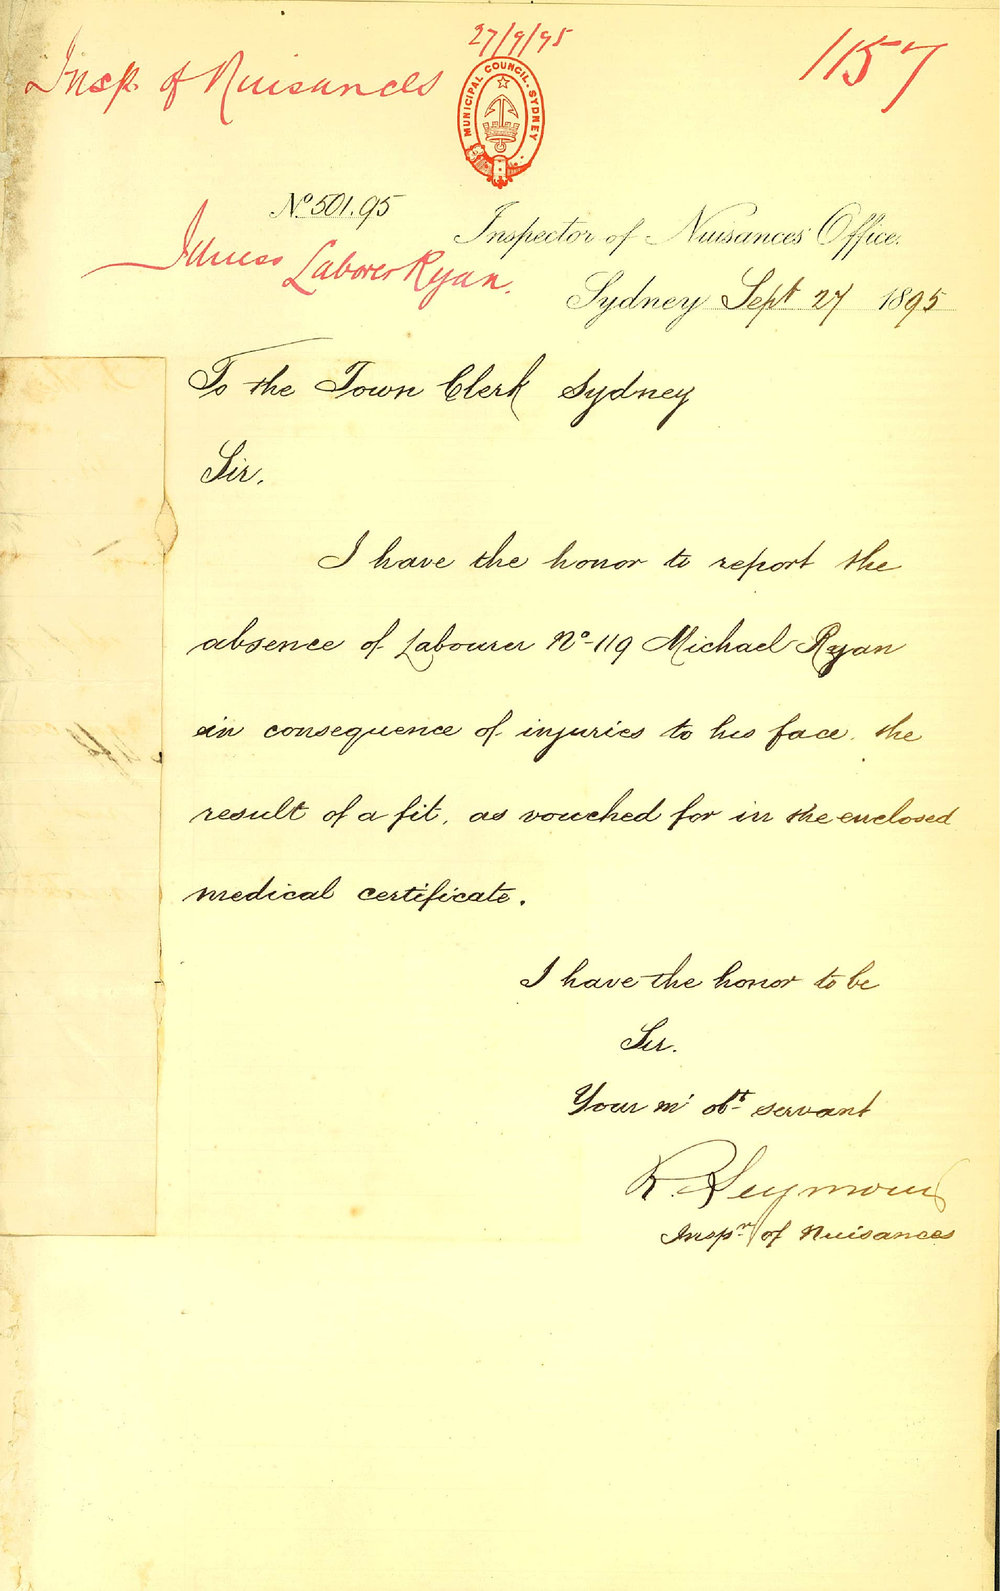 27/9/95
Insp. of Nuisances
1157
MUNICIPAL COUNCIL. SYDNEY
No. 501.95
Inspector of Nuisances' Office.
Illness Laborer Ryan.
Sydney Sept 27 1895
To the Town Clerk Sydney
Sir.
I have the honor to report the
absence of Labourer No-119 Michael Ryan
in consequence of injuries to his face. the
result of a fit, as vouched for in the enclosed
medical certificate.
I have the honor to be
Sir.
Your mt obt servant
R. Seymour
Inspr of Nuisances